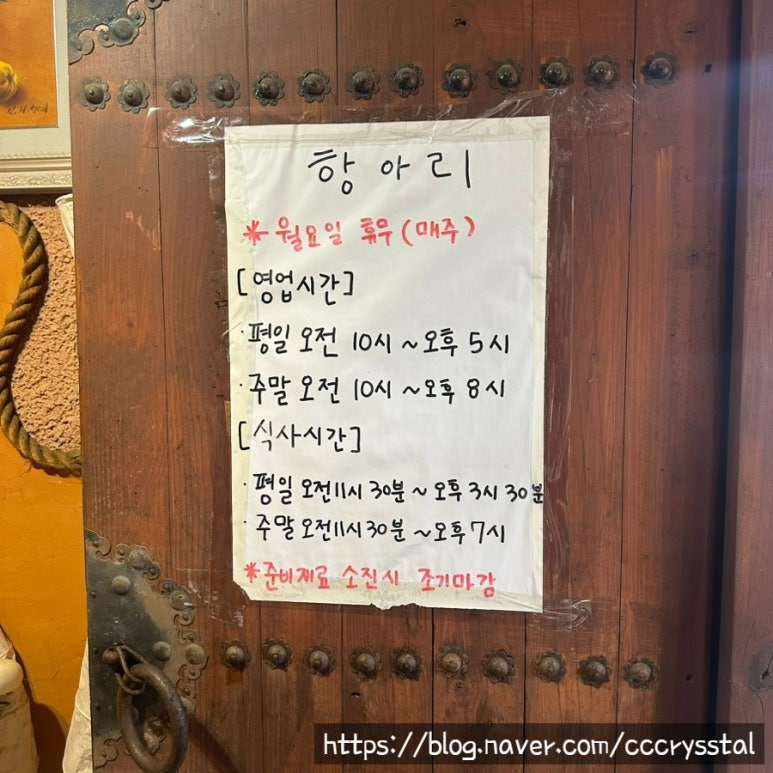 항아리
* 월요일 휴무 (매주)
[영업시간]
· 평일 오전 10시 ~ 오후 5시
· 주말 오전 10시 ~ 오후 8시
[식사시간]
· 평일 오전 11시 30분 ~ 오후 3시 30분
· 주말 오전 11시 30분 ~ 오후 7시
* 준비재료 소진시 조기마감
https://blog.naver.com/cccrysstal